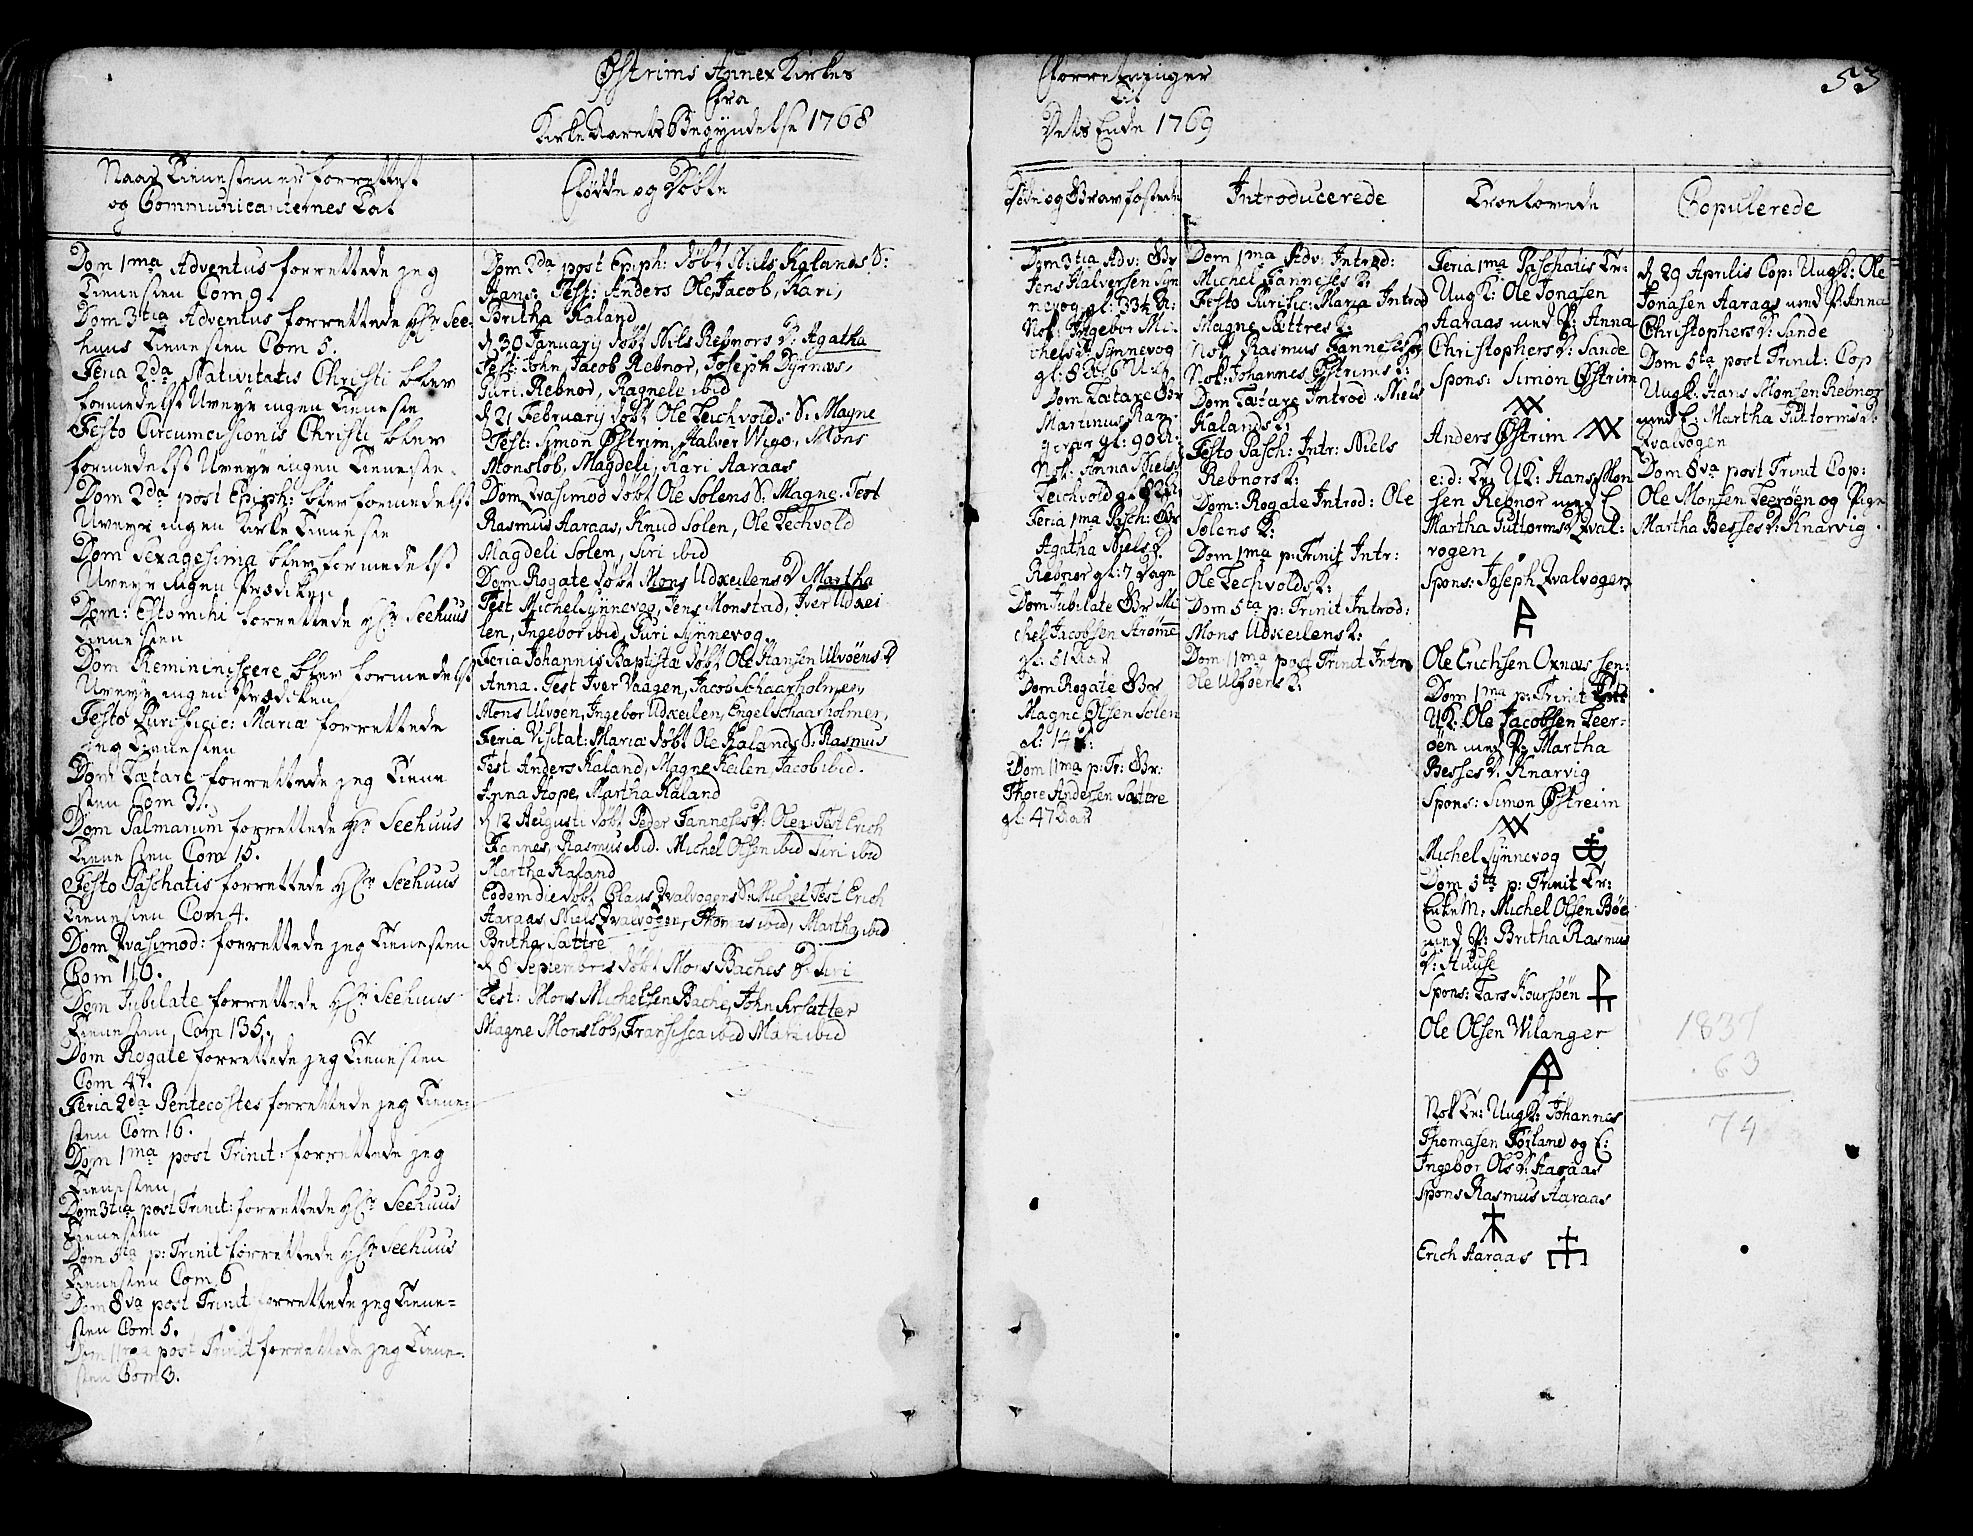 Østrims Annex Kirkes
fra
Kirke Aarets Begyndelse 1768
Naar Tienesten er forrettet
og Communicanternes Tal
Fødde og Døbte
Dom 1ma Adventus forrettede jeg
Tienesten Com 9.
Dom 3tia Adventus forrettede Hr See-
huus Tienesten Com 5.
Feria 2da Nativitatis Christi blev
formedelst Uveyr ingen Tieneste
Festo Circumcisionis Christi blev
formedelst Uveyr ingen Tieneste.
Dom 2da post Epiph: blev formedelst
Uveyr ingen Kirke Tieneste
Dom Sexagesima blev formedelst
Uveyr ingen Prædiken
Dom: Estomihi forrettede Hr Seehuus
Tienesten
Dom Reminiscere blev formedelst
Uveyr ingen Prædiken
Festo Purificic: Mariæ forrettede
jeg Tienesten
Dom Lætare forrettede jeg Tiene
sten Com 3.
Dom Palmarum forrettede Hr Seehuus
Tienesten Com 15.
Festo Paschatis forrettede Hr Seehuus
Tienesten Com 4.
Dom Qvasimod: forrettede jeg Tienesten
Com 116.
Dom Jubilate forrettede Hr Seehuus
Tienesten Com 135.
Dom Rogate forrettede jeg Tienesten
Com 47.
Feria 2da Pentecostes forrettede jeg Tiene-
sten Com 16.
Dom 1ma post Trinit: forrettede jeg
Tienesten
Dom 3tia post Trinit: forrettede Hr Seehuus
Tienesten
Dom 5ta p: Trinit forrettede Hr Seehuus
Tienesten Com 6
Dom 8va post Trinit forrettede jeg Tiene-
sten Com 5.
Dom 11ma post Trinit forrettede jeg Tiene-
sten Com 3.
Dom 2da post Epiph: døbt Niels Kalands S:
Hans: Test: Anders Ole, Jacob, Kari,
Britha Kaland
d 30 January døbt Nils Rebnors D: Agatha
Test: John, Jacob Rebnor, Joseph Dyrnæs,
Guri: Rebnor, Ragnele ibid
d 21 February døbt Ole Teichvolds S: Magne
Test: Simon Østrim, Halver Wigo, Mons
Monsløb, Magdeli, Kari Aaraas
Dom Qvasimod døbt Ole Solens S: Magne. Test
Rasmus Aaraas, Knud Solen, Ole Techvold
Magdeli Solen, Siri ibid
Dom Rogate døbt Mons Udkeilens D Martha
Test Michel Synnevog, Jens Monstad, Iver Udkei
len, Ingebor ibid, Guri Synnevog
Feria Johannis Baptistæ døbt Ole Hansen Ulvøens D
Anna. Test Iver Vaagen, Jacob Schaarholmen,
Mons Ulvøen, Ingebor Udkeilen, Engel Schaarholmen,
Feria Visitat: Mariæ døbt Ole Kalands S. Rasmus
Test Anders Kaland, Magne Keilen, Jacob ibid.
Anna Hope, Martha Kaland
d 12 Augusti døbt Peder Fannesses D: Olen: Test Erich
Fannes, Rasmus ibid. Michel Olsen ibid Siri ibid
Martha Kaland
Eodem die døbt Claus Qvalvogens S: Michel Test Erich
Aaraas, Niels Qvalvogen, Thomas ibid, Martha ibid
Britha Sættre
d 8 Septembris døbt Mons Baches D: Siri
Test: Mons Michelsen Bache, John
Magne Monsløb, Fransisca ibid Mari ibid
Forretninger
Til
Dets Ende 1769
53
Døde og Gravfæstede
Introducerede
Troelovede
Copulerede
Dom 3tia Adv: Gr
Jens Halversen Syn
nevog gl: 33½ A:
Nok Ingebor Mi-
chelsD: Synnevog
gl: 8 A: 6 U:
Dom Lætare Gr
Martinus Ram-
gl: 90 A:
Nok: Anna Niels D
Teichvold gl 82 A:
Feria 1ma Pasch: Gr
Agatha Niels D.
Rebnor gl: 7 Dage
Dom Jubilate Gr Mi-
chel Jacobsen Strømme
gl: 51 Aar
Dom Rogate Gr
Magne Olsen Solen
gl: 14 D:
Dom 11ma p: Tr: Gr:
Thore Andersen Sættre
gl: 47 Aar
Dom 1ma Adv: Introd:
Michel Fanneses K:
Festo Purific: Maria Introd
Magne Sættres K:
Nok Rasmus Fanneses K
Nok: Johannes Østrims K:
Dom Lætare Introd: Niels
Kalands K:
Festo Pasch: Intr: Niels
Rebnors K:
Dom: Rogate Introd: Ole
Solens K:
Dom 1ma p: Trinit Intr:
Ole Techvolds K:
Dom 5ta p: Trinit Introd:
Mons Udkeilens K:
Dom 11ma post Trinit Intr
Ole Ulføens K:
Feria 1ma Paschatis Tr:
UngK: Ole Jonasen
Aaraas med P: Anna
Christophers D: Sande
Spons: Simon Østrim
Anders Østrim
e: d: Tr: UK: Hans Mon
sen Rebnor med E
Martha Guttorms D Qval-
vogen
Spons: Joseph Qvalvogen
Ole Erichsen Oxnæs sen:
Dom 1ma p: Trinit
UK: Ole Jacobsen Leer-
øen med P: Martha
Besses D: Knarvig
Spons: Simon Østreim
Michel Synnevog
Dom 3ta p: Trinit Tr:
EnkeM: Michel Olsen Bøe
med P: Britha Rasmus
D: Huuse
Spons: Lars Kourøen
Ole Olsen Wilanger
Nok Tr: UngK: Johannes
Thomasen Følland og E:
Ingebor Ols D: Aaraas
Spons Rasmus Aaraas
Erich Aaraas
d 29 Aprilis Cop: UngK: Ole
Jonasen Aaraas med P. Anna
Christophers D: Sande
Dom 5ta post Trinit: Cop
UngK: Hans Monsen Rebnor
med E: Martha Guttorms D:
Qvalvogen
Dom 8va post Trinit Cop:
Ole Monsen Leerøen og Pige
Martha Besses D: Knarvig.
1837
63
74